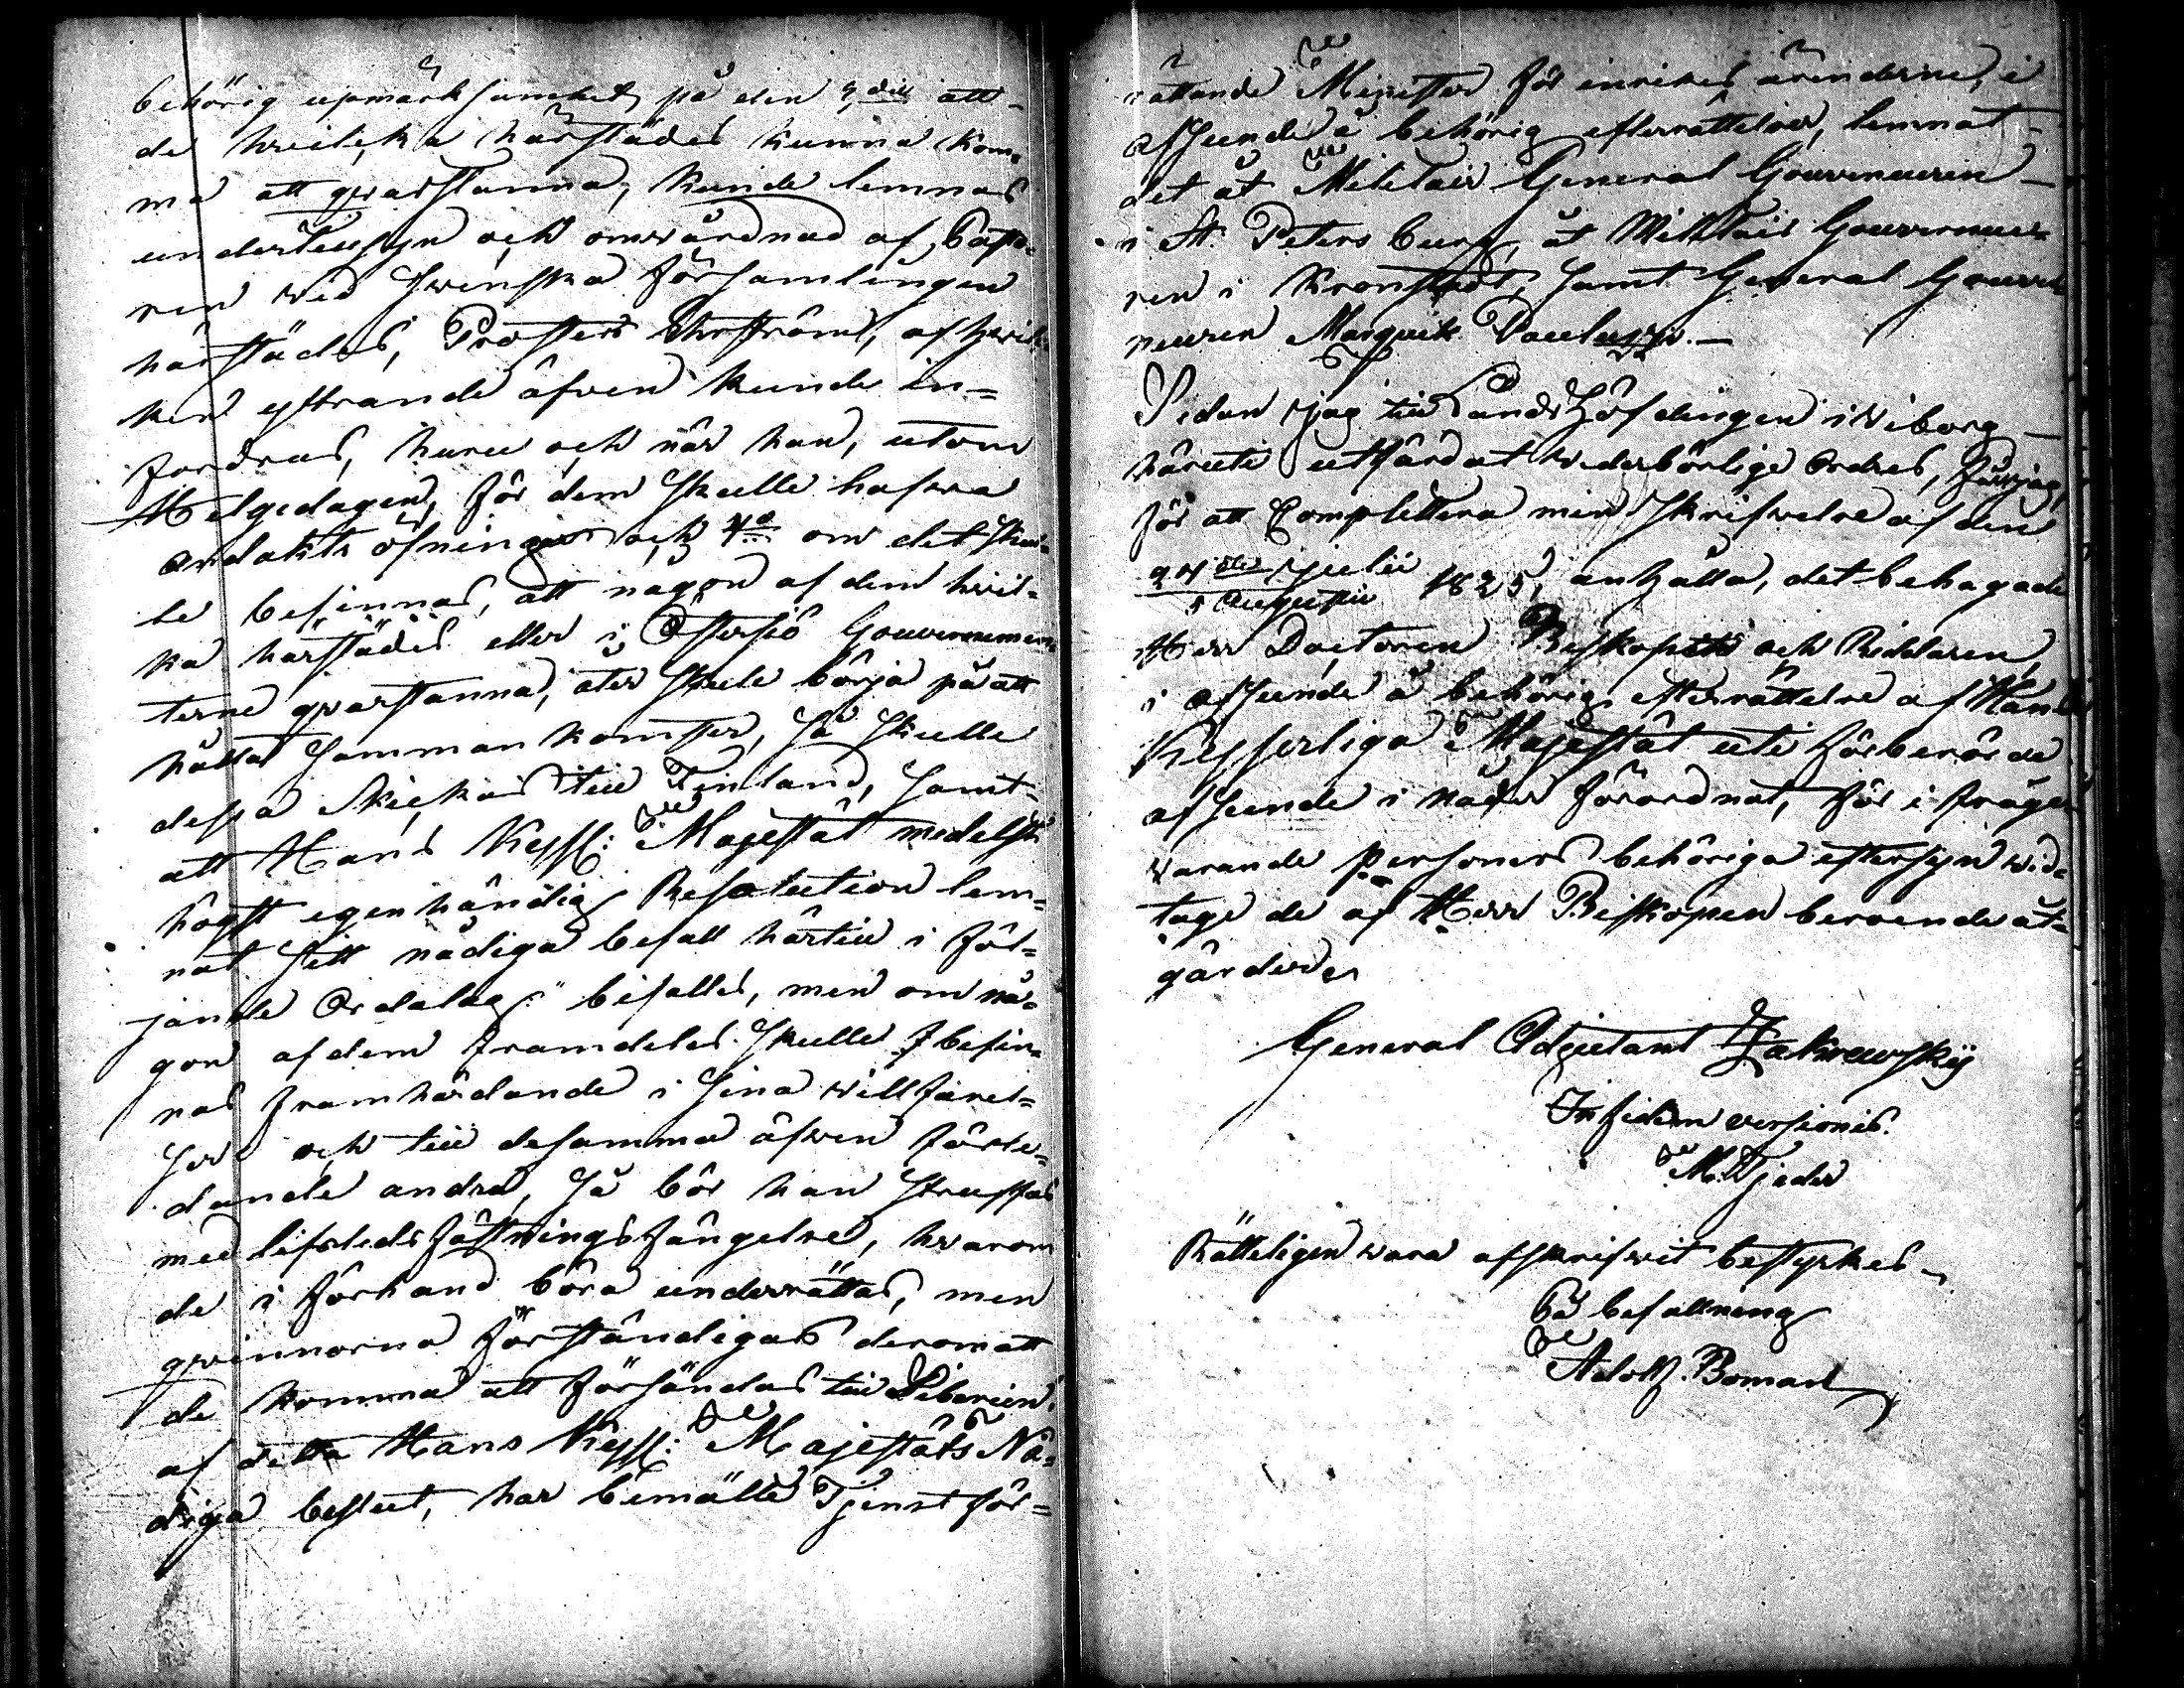 behörig upmärksamhet på den att-
de hwilka härstädes kunna kom-
ma att qwarstanna, kunde lemnas
under tilsyn och omwårdnad af Pasto-
ren wid Swenska Församlingen
härstädes, Prosten Ehrström, af hwil-
ken yttrande äfwen kunde in-
fordras, huru och när han, utom
Helgedagen, för dem skulle hafwa
andakts öfningar och 4:o om det skul-
le befinnas, att någon af dem hwil-
ka härstädes eller i Östersjö Gouvernemen-
terne qwarstanna, åter skulle börja på att
hålla Sammankomster, så skulle
dessa skickas till Finland, samt
att Hans Kejss: Majestät medelst
högst egenhändig Resolution lem-
nat sitt nådiga befall härtill i föl-
jande Ordalag: "bifalles, men om nå-
gon af dem framdeles skulle befin-
nas framhärdande i sina willfarel-
ser och till desamma äfwen förle-
dande andra, så bör han straffas
med lifstids fästningsfängelse, hwarom
de i förhand böra underrättas, men
qwinnorna förständigas derom att
de komma att försändas till Siberien".
af detta Hans Kejss: Majestäts Nå-
diga beslut, har bemälte Tjenst för-
rättande Minister för inrikes ärenderne, i
afseende å behörig efterrättelse, lemnat
det åt Militair General Gouverneuren
i St. Petersburg, åt Militair Gouverneu-
ren i Kronstadt, samt General Gouver-
neuren Marquis Paulucci.
Sedan jag till Landshöfdingen i Wiborg
häruti utfärdat wederbörlige Ordres, får jag,
för att Complettera min skrifwelse af den
24 de Julii
5 Augusti 1825, anhålla, det behagade
Herr Doctoren Biskopen och Riddaren
i afseende å behörig efterrättelse af Hans
Kejserliga Majestät uti förberörde
afseende i nåder förordnat, för i fråga
warande personers behöriga eftersyn wid-
taga de af Herr Biskopen beroende åt-
gärder.
General Adjutant Zakrewsky
In fidem versionis.
M. Tjeder
Rätteligen wara afskrifwit bestyrkes
På befallning
Adolf. Boman